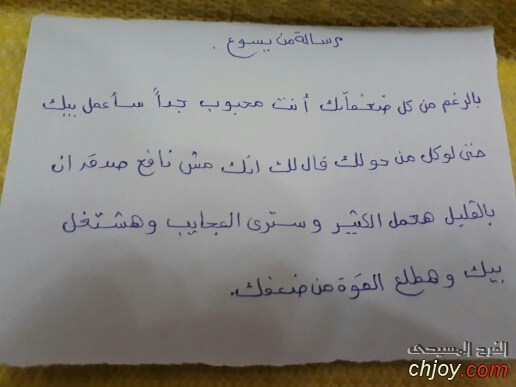 رسالة من يسوع .
بالرغم من كل ضعفاتك أنت محبوب جداً سأعمل بيك
حتى لو كل من حولك قال لك انك مش نافع صدقنى ان
بالقليل هعمل الكثير وسترى العجايب وهشتغل
بيك وهطلع القوة من ضعفك.
الفرح المسيحى
chjoy.com